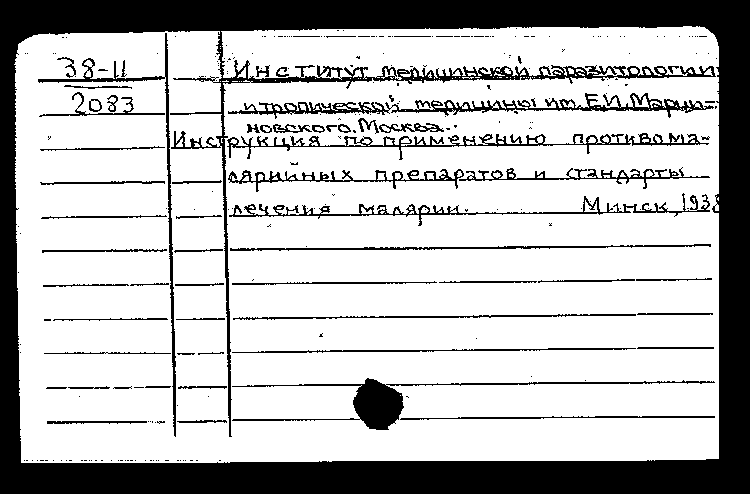 38-II
2083
Институт медицинской паразитологии и
и тропической медицины им. Е.И. Марци-
новского. Москва.
Инструкция по применению противома-
лярийных препаратов и стандарты
лечения малярии. Минск, 1938